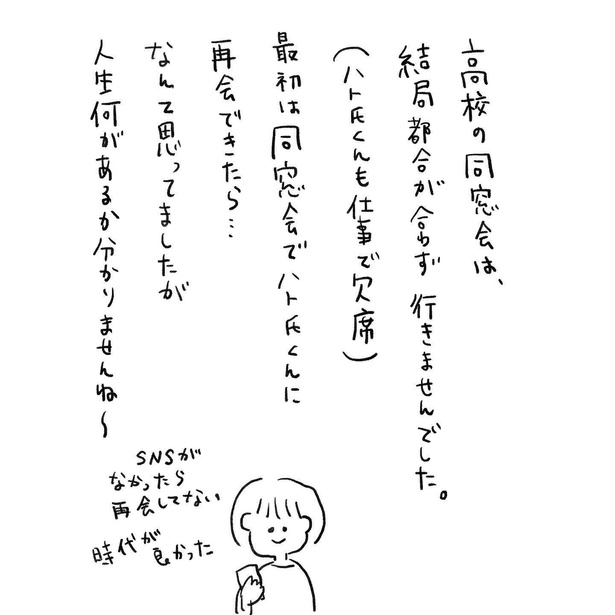 高校の同窓会は、
結局都合が合わず 行きませんでした。
(ハト氏くんも仕事で欠席)
最初は同窓会でハト氏くんに
再会できたら…
なんて思ってましたが
人生何があるか分かりませんね〜
SNSが
なかったら
再会してない
時代が
良かった